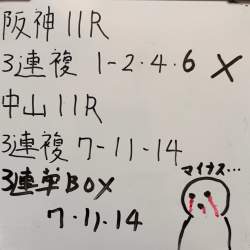 阪神11R
3連複 1-2.4.6 X
中山11R
3連複 7-11-14
3連単BOX
7.11.14
マイナス…